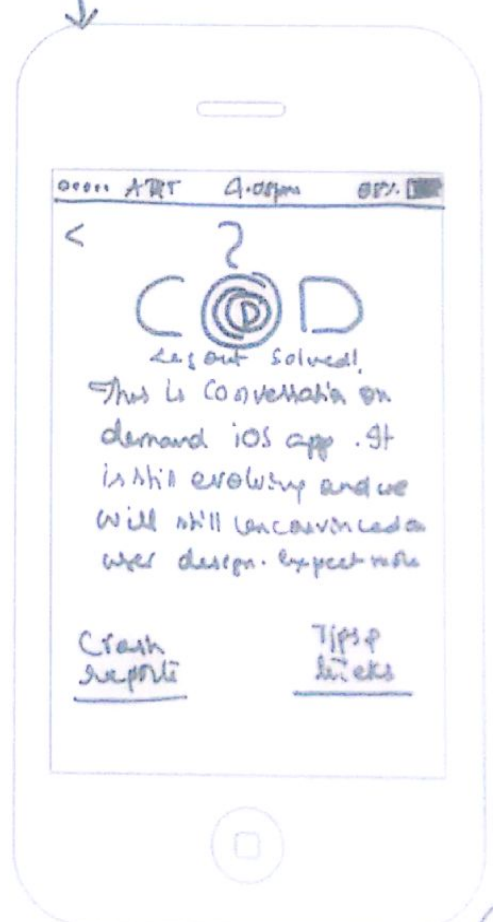 AT&T 4:08pm 88%
<
?
COD
Let's get Solved!
This is Conversation on
demand iOS app. It
is still evolving and we
will still unconvinced on
user design. Expect more
Crash Tips &
reports tricks